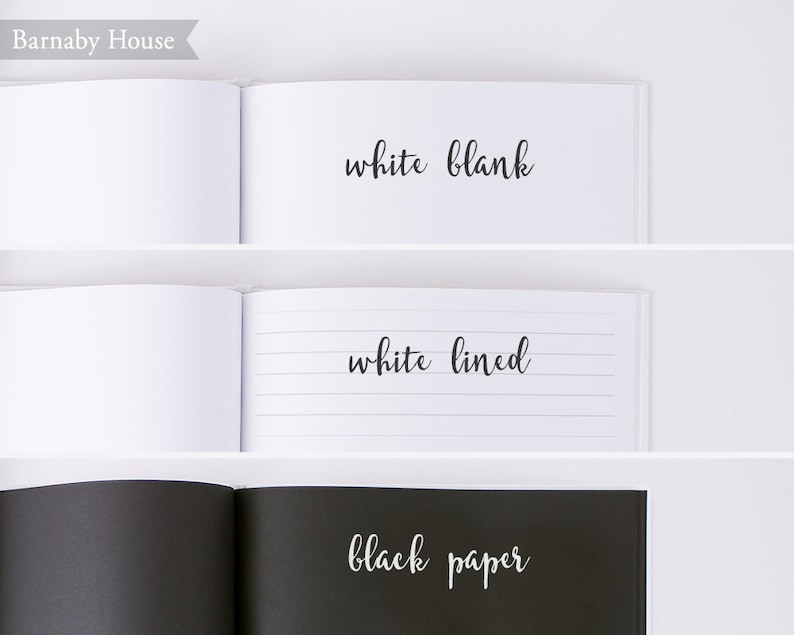 Barnaby House
white blank
white lined
black paper